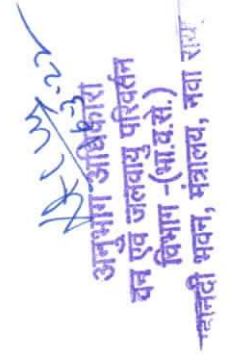 अनुभाग अधिकारी
वन एवं जलवायु परिवर्तन
विभाग -(भा.व.से.)
महानदी भवन, मंत्रालय, नवा